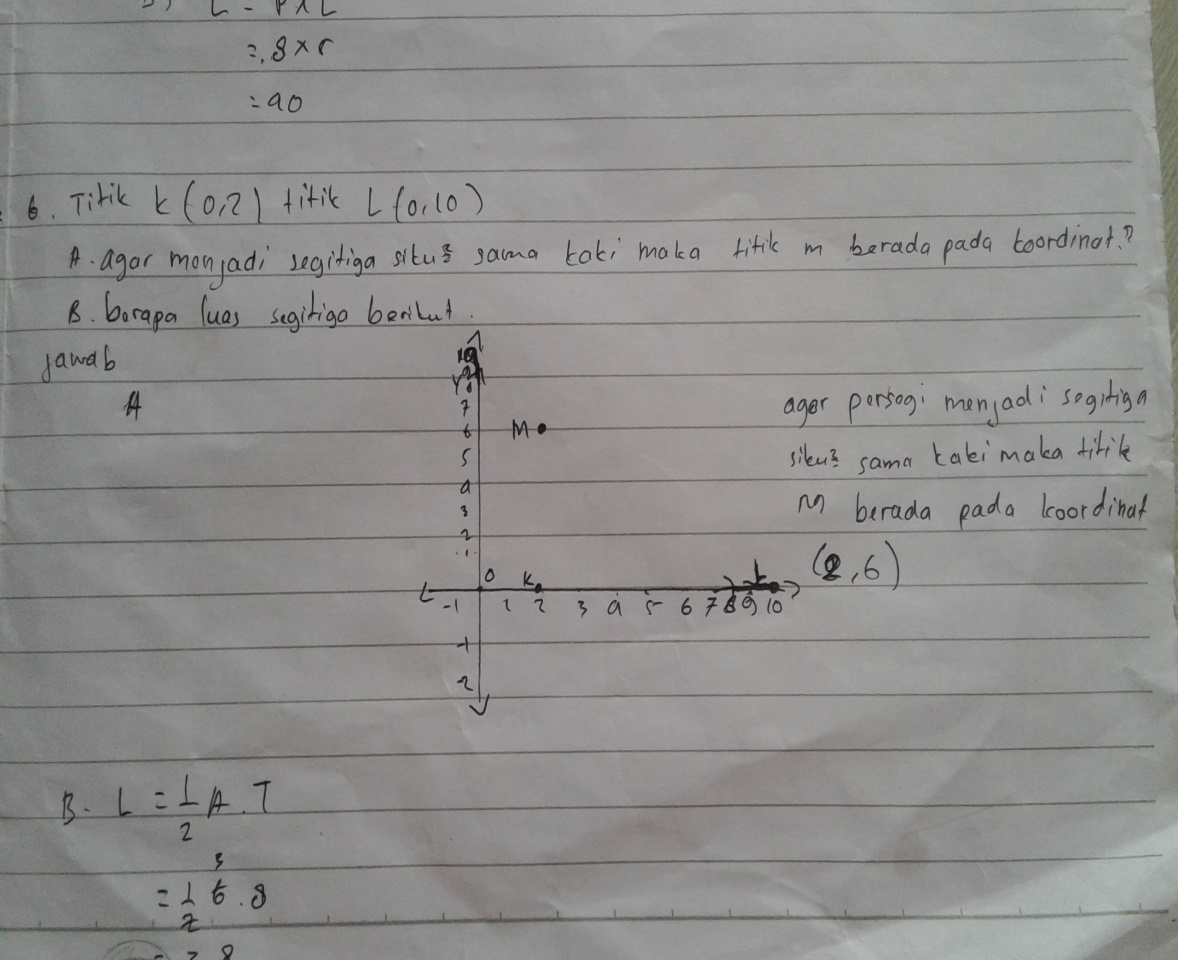 L = P x L
= 8 x 5
= 40
6. Titik k (0,2) titik L (0,10)
A. agar menjadi segitiga siku² sama kaki maka titik m berada pada koordinat.?
B. berapa luas segitiga berikut.
jawab
A
10
9
8
7
6
5
4
3
2
1
M
agar persegi menjadi segitiga
siku² sama kaki maka titik
M berada pada koordinat
(2,6)
0
K
L
-1 1 2 3 4 5 6 7 8 9 10
-1
-2
B. L = 1/2 A.T
3
= 1/2 6.8